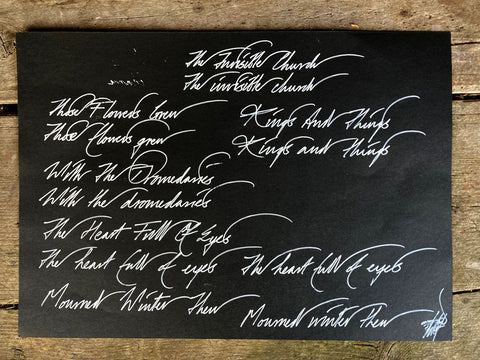 The Invisible Church
The invisible church
Those Flowers Grew
Those flowers grew
Kings And Things
Kings and things
With The Dromedaries
With the dromedaries
The Heart Full Of Eyes
The heart full of eyes
The heart full of eyes
Mourned Winter Then
Mourned winter then